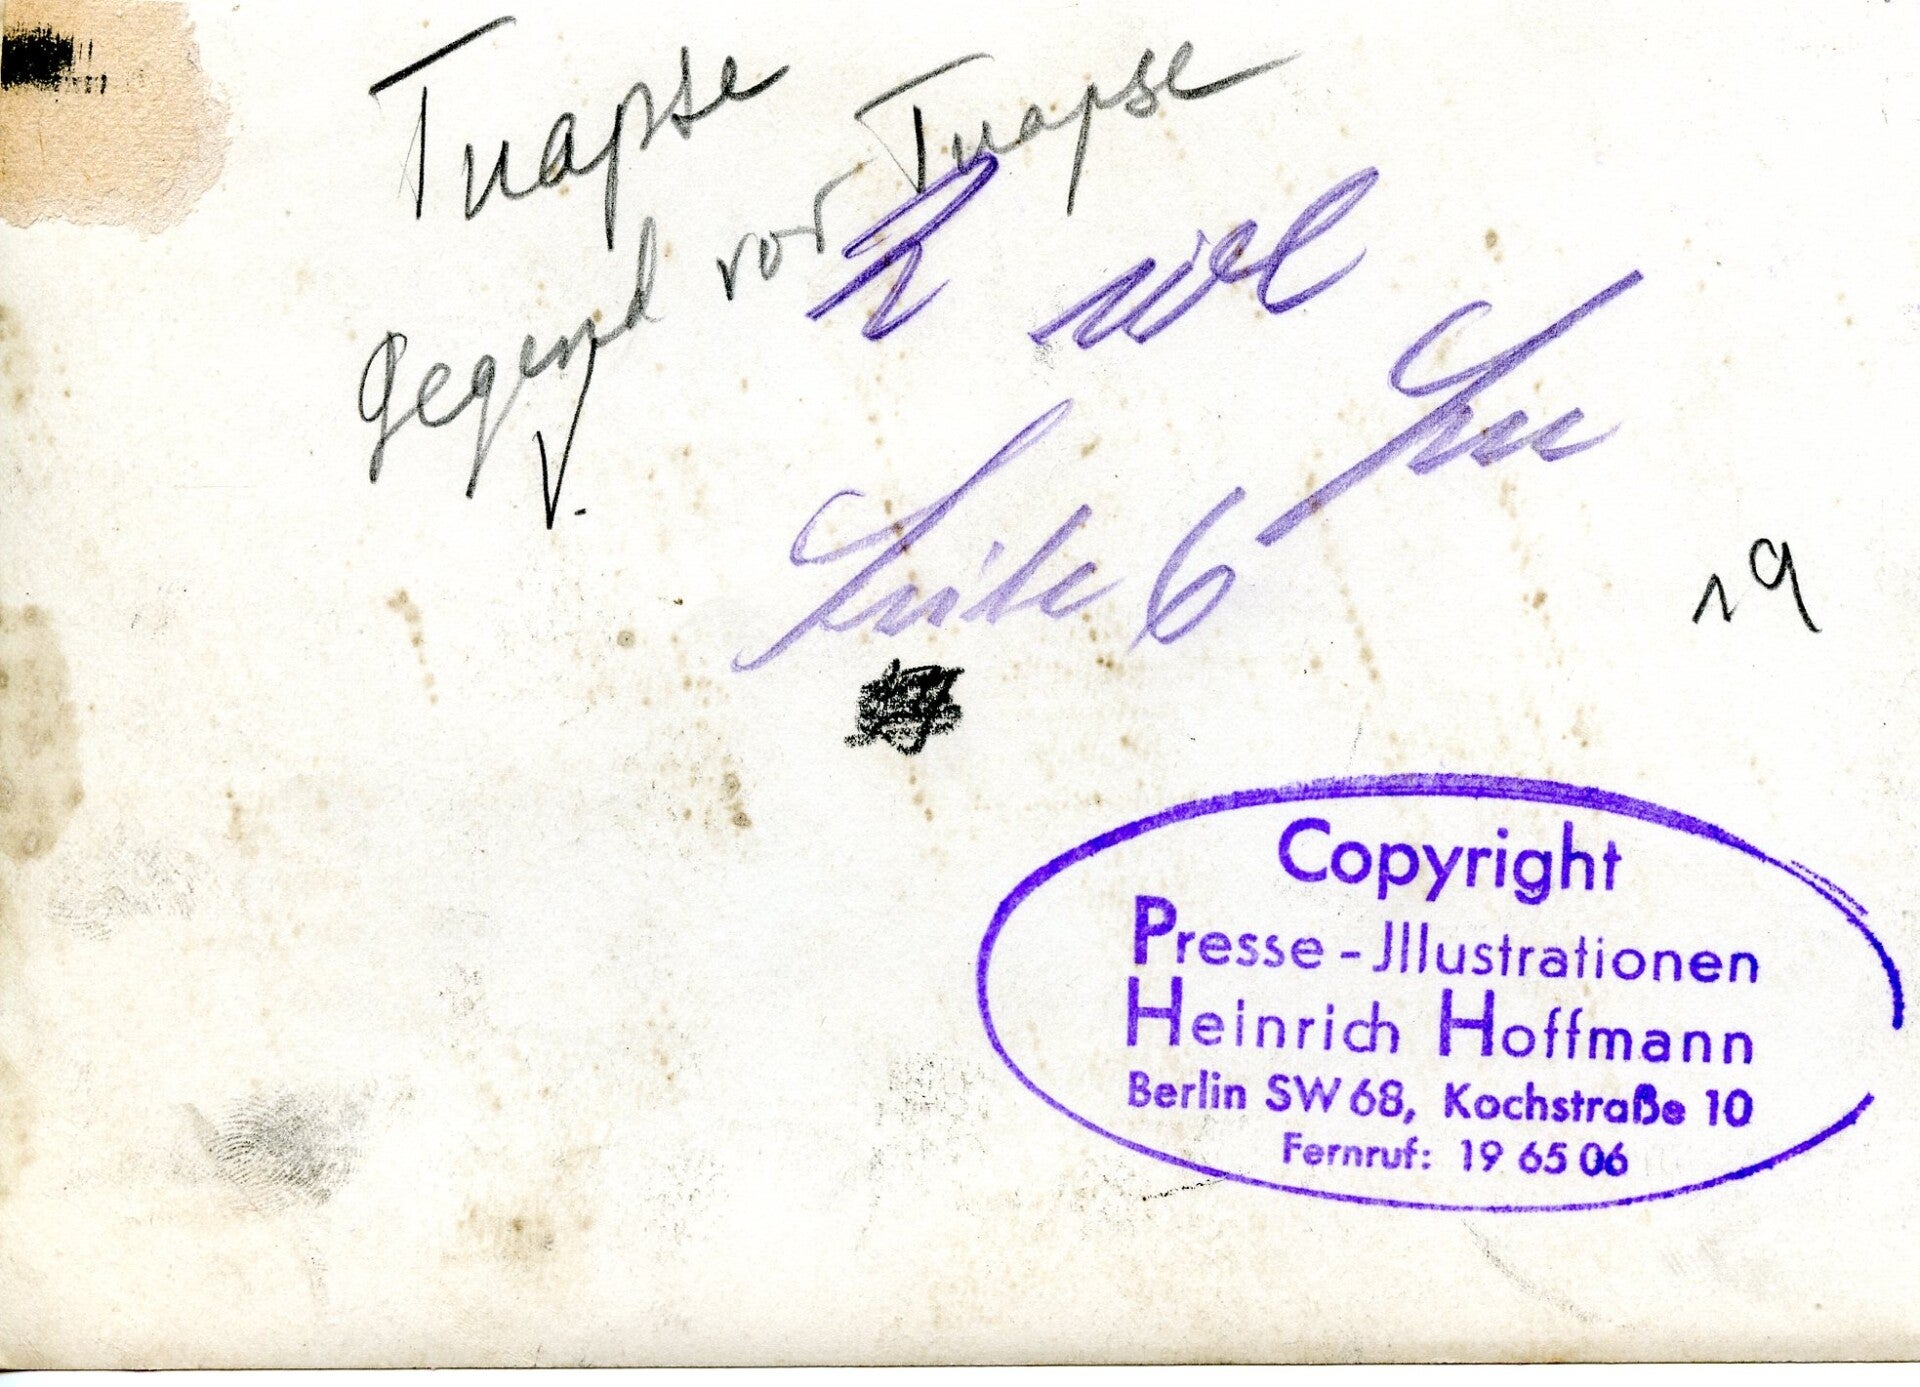 Tuapse
Gegend vor Tuapse
V.
Seite 6
19
Copyright
Presse-Jllustrationen
Heinrich Hoffmann
Berlin SW 68, Kochstraße 10
Fernruf: 19 65 06